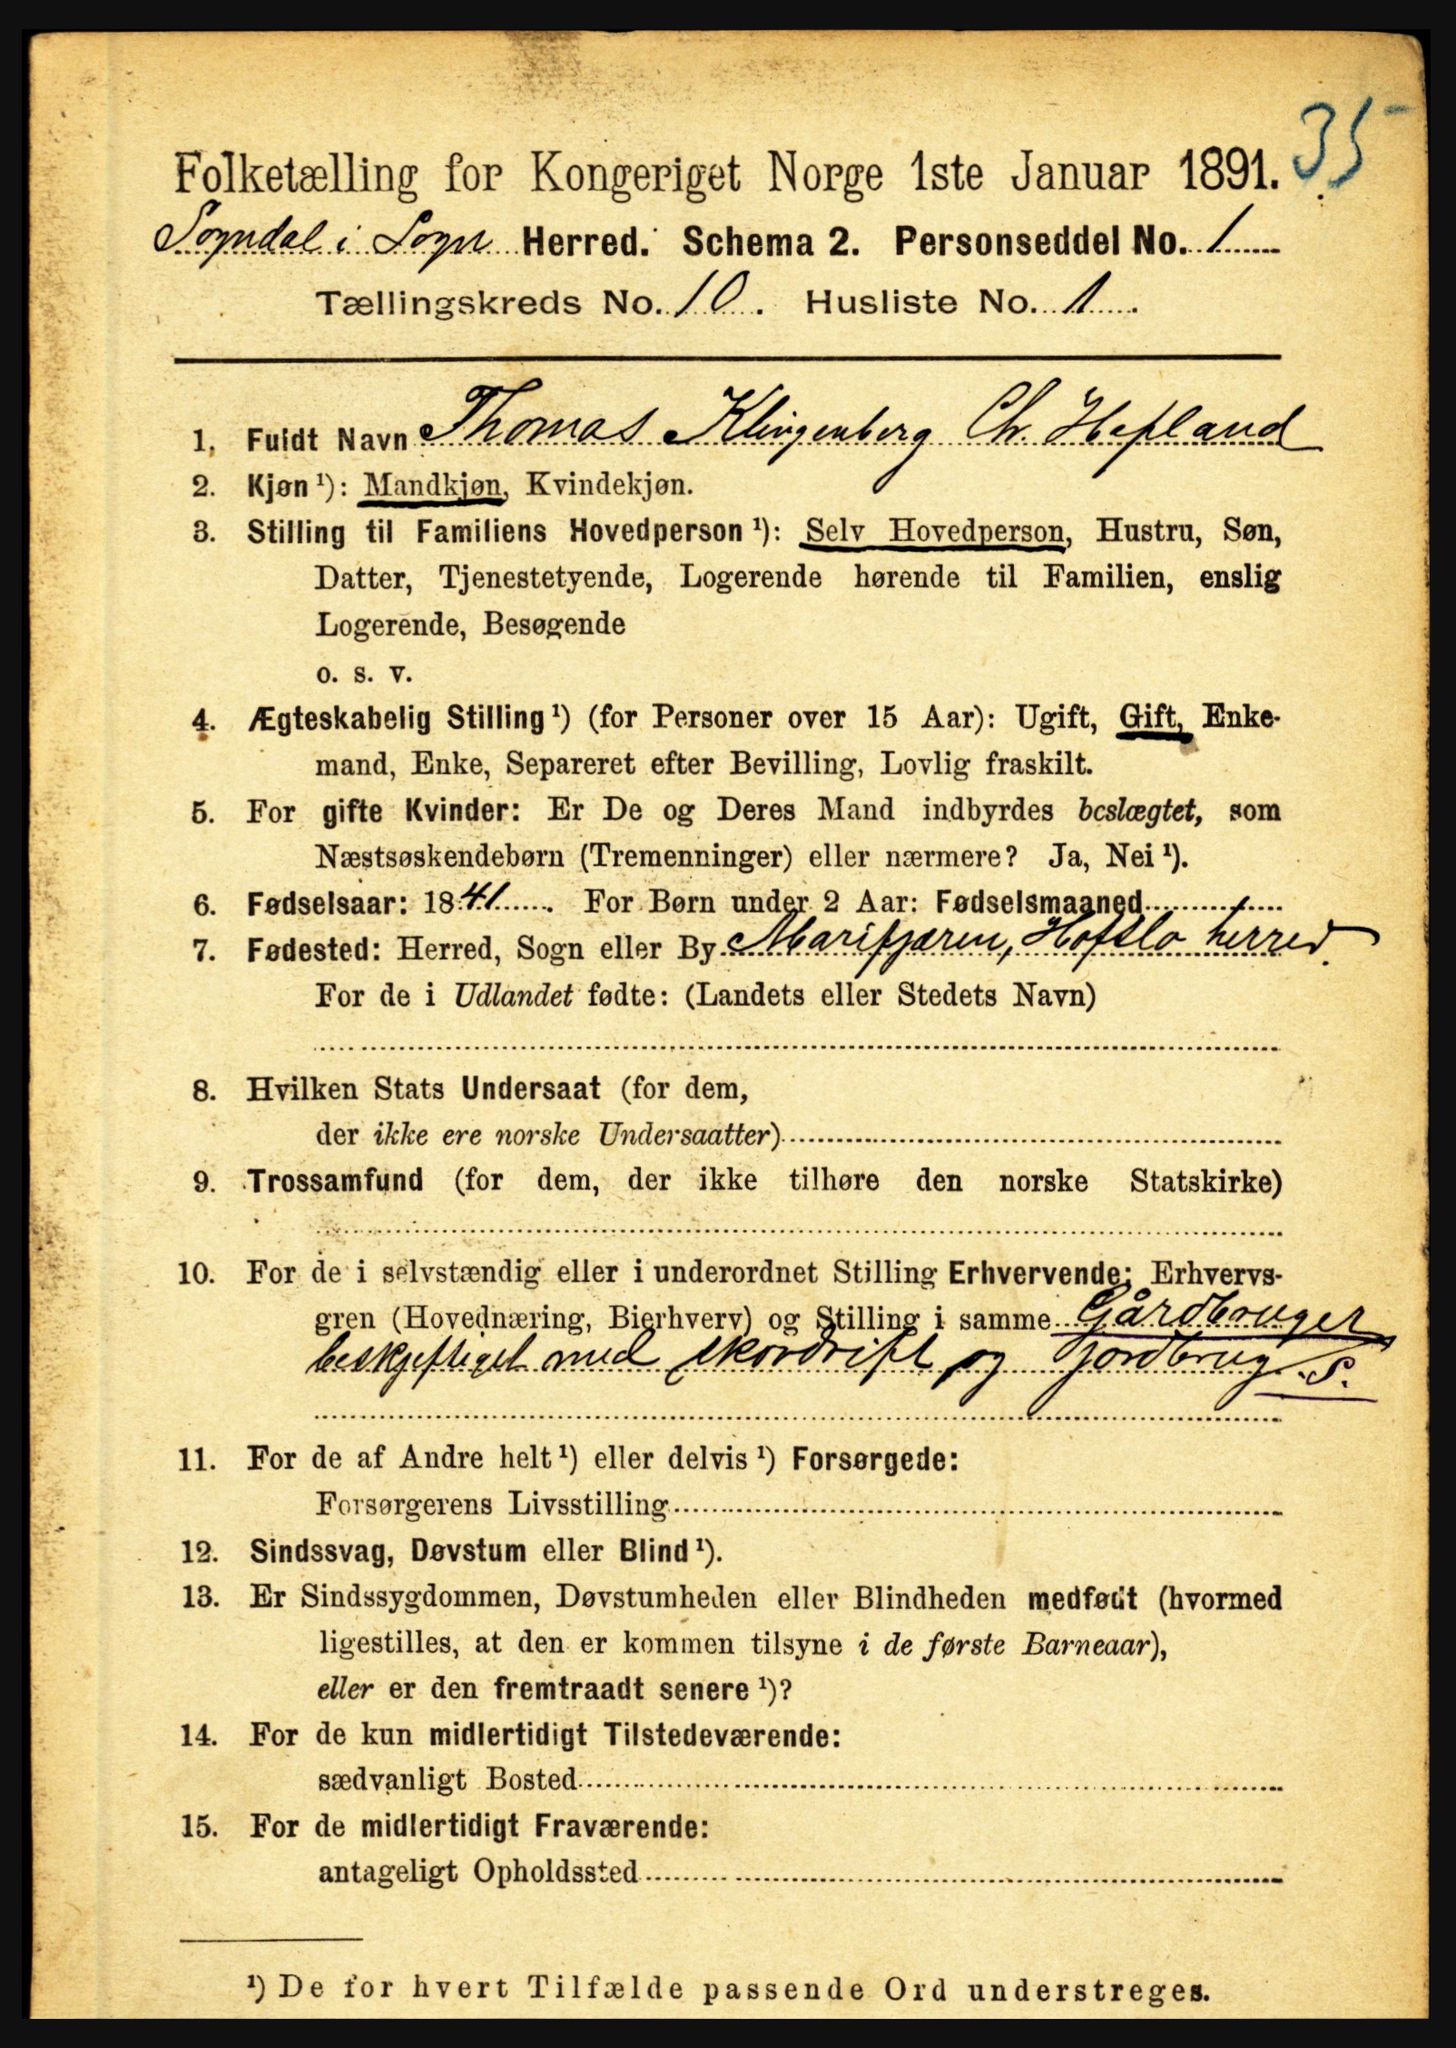 35
Folketælling for Kongeriget Norge 1ste Januar 1891.
Sogndal i Sogn Herred. Schema 2. Personseddel No. 1
Tællingskreds No. 10. Husliste No. 1.
1. Fuldt Navn Thomas Klingenberg Chr. Hefland
2. Kjøn ¹): Mandkjøn, Kvindekjøn.
3. Stilling til Familiens Hovedperson ¹): Selv Hovedperson, Hustru, Søn,
Datter, Tjenestetyende, Logerende hørende til Familien, enslig
Logerende, Besøgende
o. s. v.
4. Ægteskabelig Stilling ¹) (for Personer over 15 Aar): Ugift, Gift, Enke-
mand, Enke, Separeret efter Bevilling, Lovlig fraskilt.
5. For gifte Kvinder: Er De og Deres Mand indbyrdes beslægtet, som
Næstsøskendebørn (Tremenninger) eller nærmere? Ja, Nei ¹).
6. Fødselsaar: 1841. For Børn under 2 Aar: Fødselsmaaned
7. Fødested: Herred, Sogn eller By Marifjæren, Hafslo herred.
For de i Udlandet fødte: (Landets eller Stedets Navn)
8. Hvilken Stats Undersaat (for dem,
der ikke ere norske Undersaatter)
9. Trossamfund (for dem, der ikke tilhøre den norske Statskirke)
10. For de i selvstændig eller i underordnet Stilling Erhvervende: Erhvervs-
gren (Hovednæring, Bierhverv) og Stilling i samme Gårdbruger
beskjeftiget med skovdrift og Jordbrug. S.
11. For de af Andre helt ¹) eller delvis ¹) Forsørgede:
Forsørgerens Livsstilling
12. Sindssvag, Døvstum eller Blind ¹).
13. Er Sindssygdommen, Døvstumheden eller Blindheden medfødt (hvormed
ligestilles, at den er kommen tilsyne i de første Barneaar),
eller er den fremtraadt senere ¹)?
14. For de kun midlertidigt Tilstedeværende:
sædvanligt Bosted
15. For de midlertidigt Fraværende:
antageligt Opholdssted
¹) De for hvert Tilfælde passende Ord understreges.